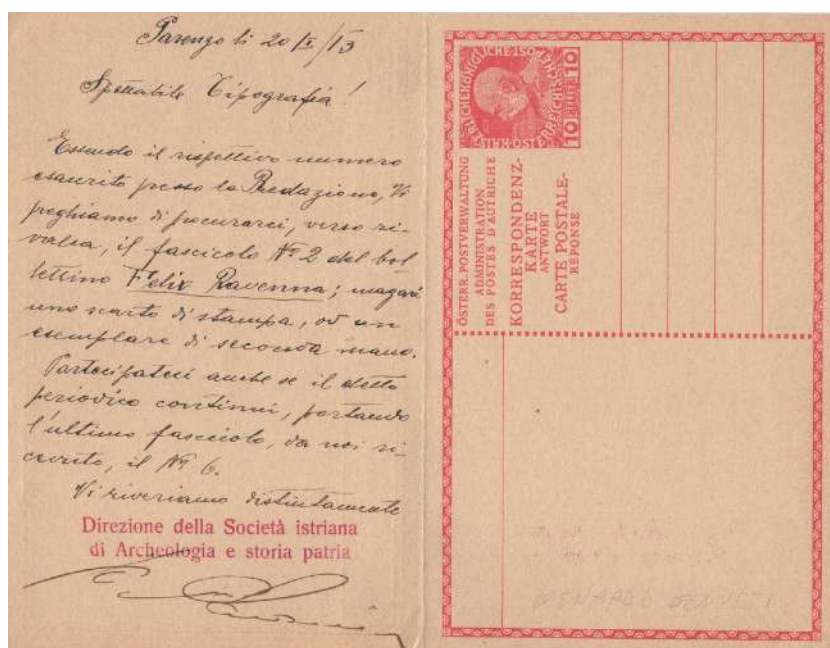 Parenzo li 20/X/13
Spettabile Tipografia!
Essendo il rispettivo numero
esaurito presso la Redazione, Vi
preghiamo di procurarci, verso ri-
valsa, il fascicolo Nº 2 del bol
lettino Felix Ravenna; magari
uno scarto di stampa, od un
esemplare di seconda mano.
Partecipateci anche se il detto
periodico continui, portando
l'ultimo fascicolo, da noi ri-
cevuto, il Nº 6.
Vi riveriamo distintamente
Direzione della Società istriana
di Archeologia e storia patria
10 HELLER 10
ÖSTERR. POSTVERWALTUNG
ADMINISTRATION
DES POSTES D'AUTRICHE
KORRESPONDENZ-
KARTE
ANTWORT
CARTE POSTALE-
REPONSE